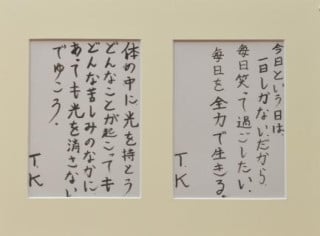 今日という日は、
一日しかないだから、
毎日笑って過ごしたい、
毎日を全力で生きる。
T.K
体の中に光を持とう
どんなことが起こっても
どんな苦しみのなかに
あっても光を消さない
でゆこう！
T.K